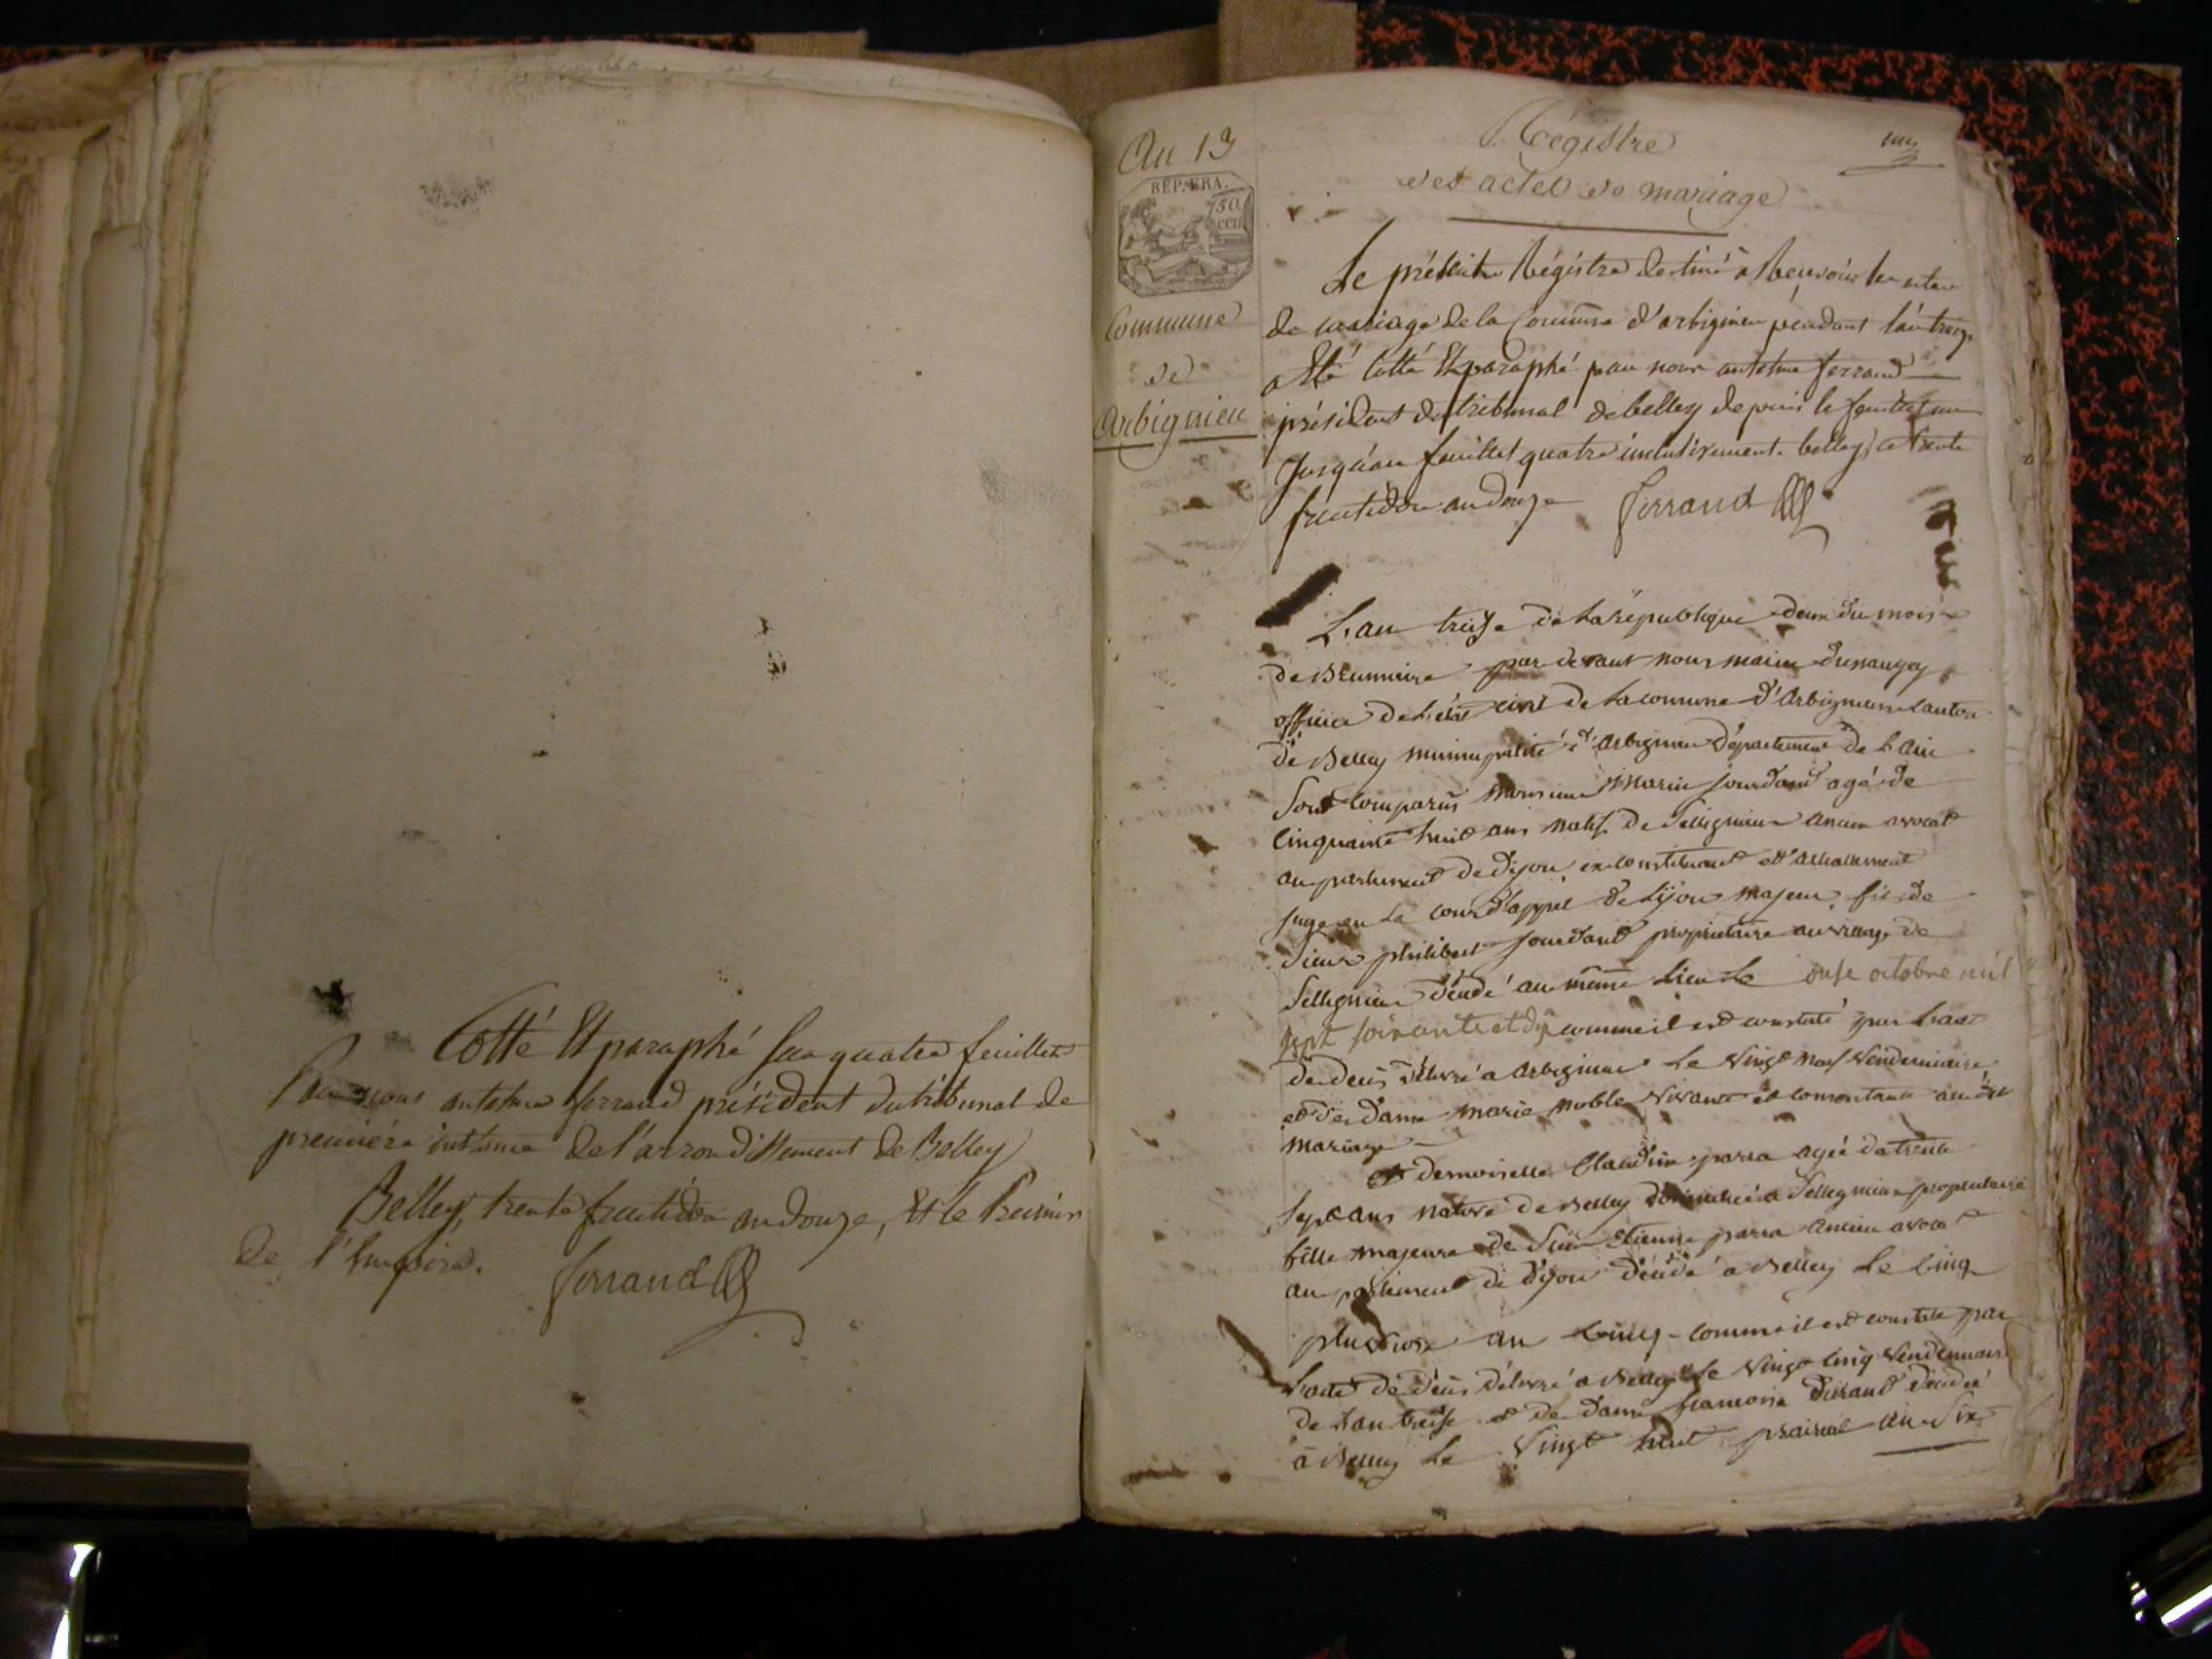 Cotté Et paraphé Sur quatre feuillets
Par nous antelme ferrand président du tribunal de
première instance de l'arrondissement de Belley
Belley, trente fructidor an douze, Et le Premier
de l'Empire. ferrand
An 13
REP. FRA.
50.
cen
Commune
de
Arbignieu
Régistre
des actes de mariage
Le présent Régistre destiné a Recevoir les actes
de mariage de la Commune d'arbignieu pendant l'an treize
a Eté Cotté Et paraphé par nous antelme ferrand
président du tribunal de belley depuis le feuillet un
Jusqu'au feuillet quatre inclusivement. belley, ce trente
fructidor an douze ferrand
L'an treize de La république deux du mois
de Brumaire par devant nous maire
officier de L'état civil de La comune d'Arbignieu Canton
de Belley municipalité d'Arbignieu Département de L'Ain
Sont comparus monsieur Jourdant agé de
Cinquante huit ans natif de Sillignieu ancien avocat
au parlement de Dijon ex constituant et actuellement
Juge en la cour d'appel de Lyon majeur fils de
Sieur philibert Jourdant propriétaire au village de
Sillignieu décédé au même Lieu Le onse octobre mil
sept soixante et dix comme il est constaté par L'acte
de decès délivré a Arbignieu Le Vingt neuf Vendemiaire
et de Dame marie noble vivante et consentante au dit
mariage
et demoiselle Claudine parra agée de trente
Sept ans native de Belley domiciliée a Sillignieu propriétaire
fille majeure de Sieur Etienne parra ancien avocat
au parlement de Dijon décédé a Belley Le Cinq
pluviose an Cinq comme il est constaté par
L'acte de décès délivré a Belley Le Vingt Cinq Vendemiaire
de L'an treise et de Dame francoise Durand décédée
à Belley Le Vingt huit prairial an Six